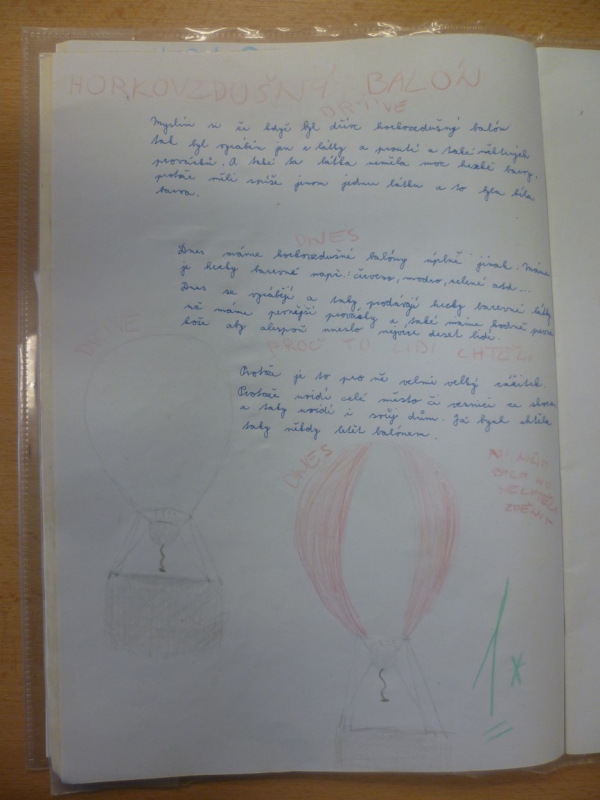 HORKOVZDUŠNÝ BALÓN
DŘÍVE
Myslím si že když byl dříve horkovzdušný balón
tak byl vyráběn jen z látky a proutí a také některých
provázků. A také ta látka neměla moc hezké barvy,
protože měli spíše jenom jednu látku a to byla bílá
barva.
DNES
Dnes máme horkovzdušné balóny úplně jinak. Máme
je hezky barevné např: červeno, modro, zelené atd...
Dnes se vyrábějí a taky prodávají hezky barevné látky
máme pevnější provázky a také máme hodně pevné
koše aby alespoň uneslo nejvíce deset lidí.
DŘÍVE
PROČ TO LIDI CHTĚLI
Protože je to pro ně velmi velký zážitek.
Protože uvidí celé město či vesnici ze shora
a taky uvidí i svůj dům. Já bych chtěla
taky někdy letět balónem.
DNES
NIC
BYCH HO
NECHTĚLA
ZMĚNIT
1*